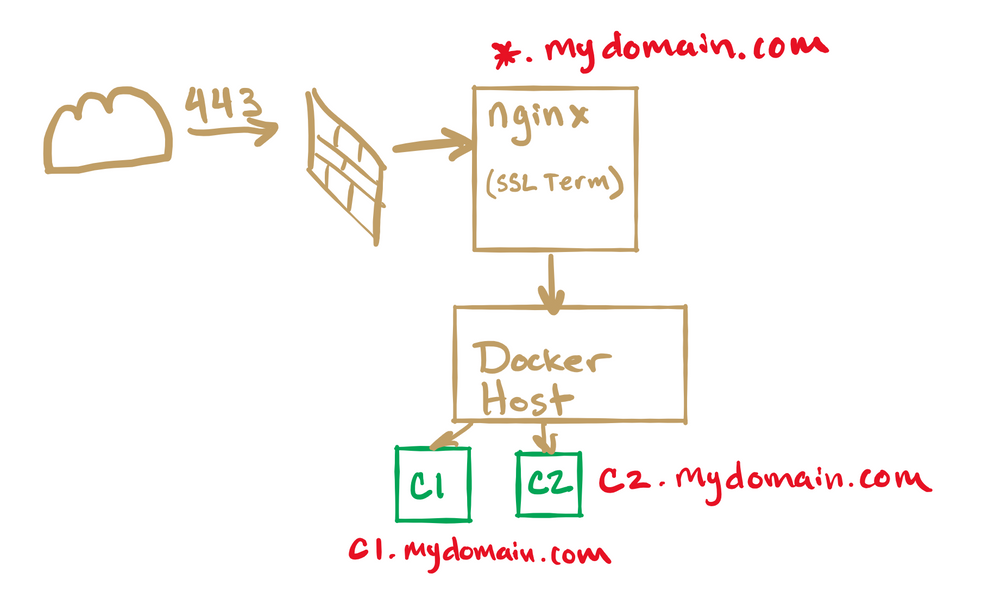 *.mydomain.com
443
nginx
(SSL Term)
Docker
Host
C1
C2
C2.mydomain.com
C1.mydomain.com